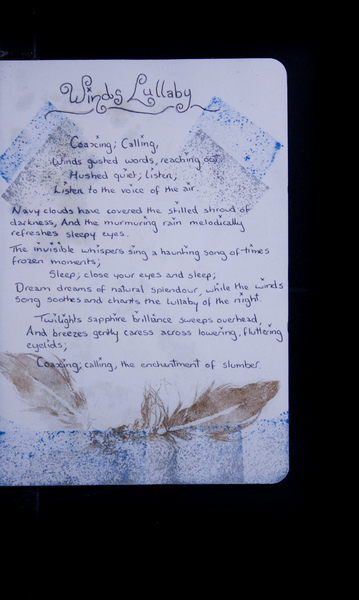 Winds Lullaby
Coaxing; Calling,
Winds gusted words, reaching out
Hushed quiet; Listen;
Listen to the voice of the air.
Navy clouds have covered the stilled shroud of
darkness, And the murmuring rain melodically
refreshes sleepy eyes.
The invisible whispers sing a haunting song of-times
frozen moments;
Sleep; close your eyes and sleep;
Dream dreams of natural splendour, while the winds
song soothes and chants the lullaby of the night.
Twilights sapphire brilliance sweeps overhead,
And breezes gently caress across lowering, fluttering
eyelids;
Coaxing; calling, the enchantment of slumber.